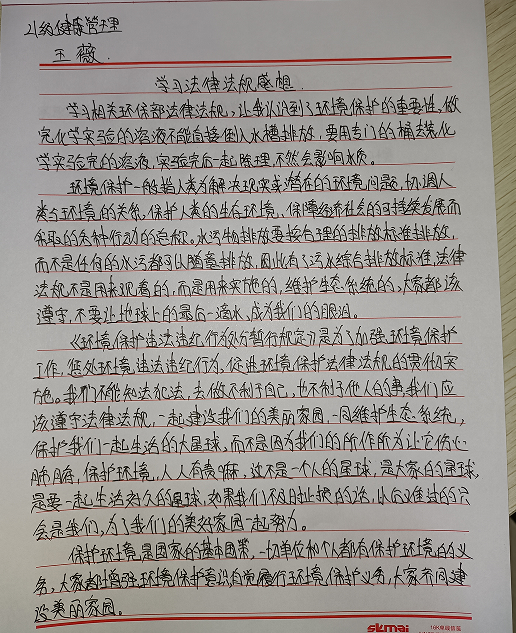 21级健康管理
王薇.
学习法律法规感想.
学习相关环保部法律法规,让我认识到了环境保护的重要性,做
完化学实验的溶液不能直接倒入水槽排放,要用专门的桶去装化
学实验完的溶液,实验完后一起除理,不然会影响水质。
环境保护一般指人类为解决现实或潜在的环境问题,协调人
类与环境的关系,保护人类的生存环境,保障经济社会的可持续发展而
采取的各种行动的总称。水污物排放要按合理的排放标准排放,
而不是任何的水污都可以随意排放,因此有了污水综合排放标准,法律
法规不是用来观看的,而是用来实施的,维护生态系统的,大家都该
遵守,不要让地球上的最后一滴水,成为我们的眼泪。
《环境保护违法违纪行为处分暂行规定》是为了加强环境保护
工作,惩处环境违法违纪行为,促进环境保护法律法规的贯彻实
施。我们不能知法犯法,去做不利于自己,也不利于他人的事,我们应
该遵守法律法规,一起建设我们的美丽家园,一同维护生态系统,
保护我们一起生活的大星球,而不是因为我们的所作所为让它伤心
,保护环境,人人有责嘛,这不是一个人的星球,是大家的星球,
是要一起生活好久的星球,如果我们不及时止损的话,以后难过的只
会是我们,为了我们的美好家园一起努力。
保护环境是国家的基本国策,一切单位和个人都有保护环境的义
务,大家都增强环境保护意识,自觉履行环境保护义务,大家共同建
设美丽家园。
skmai